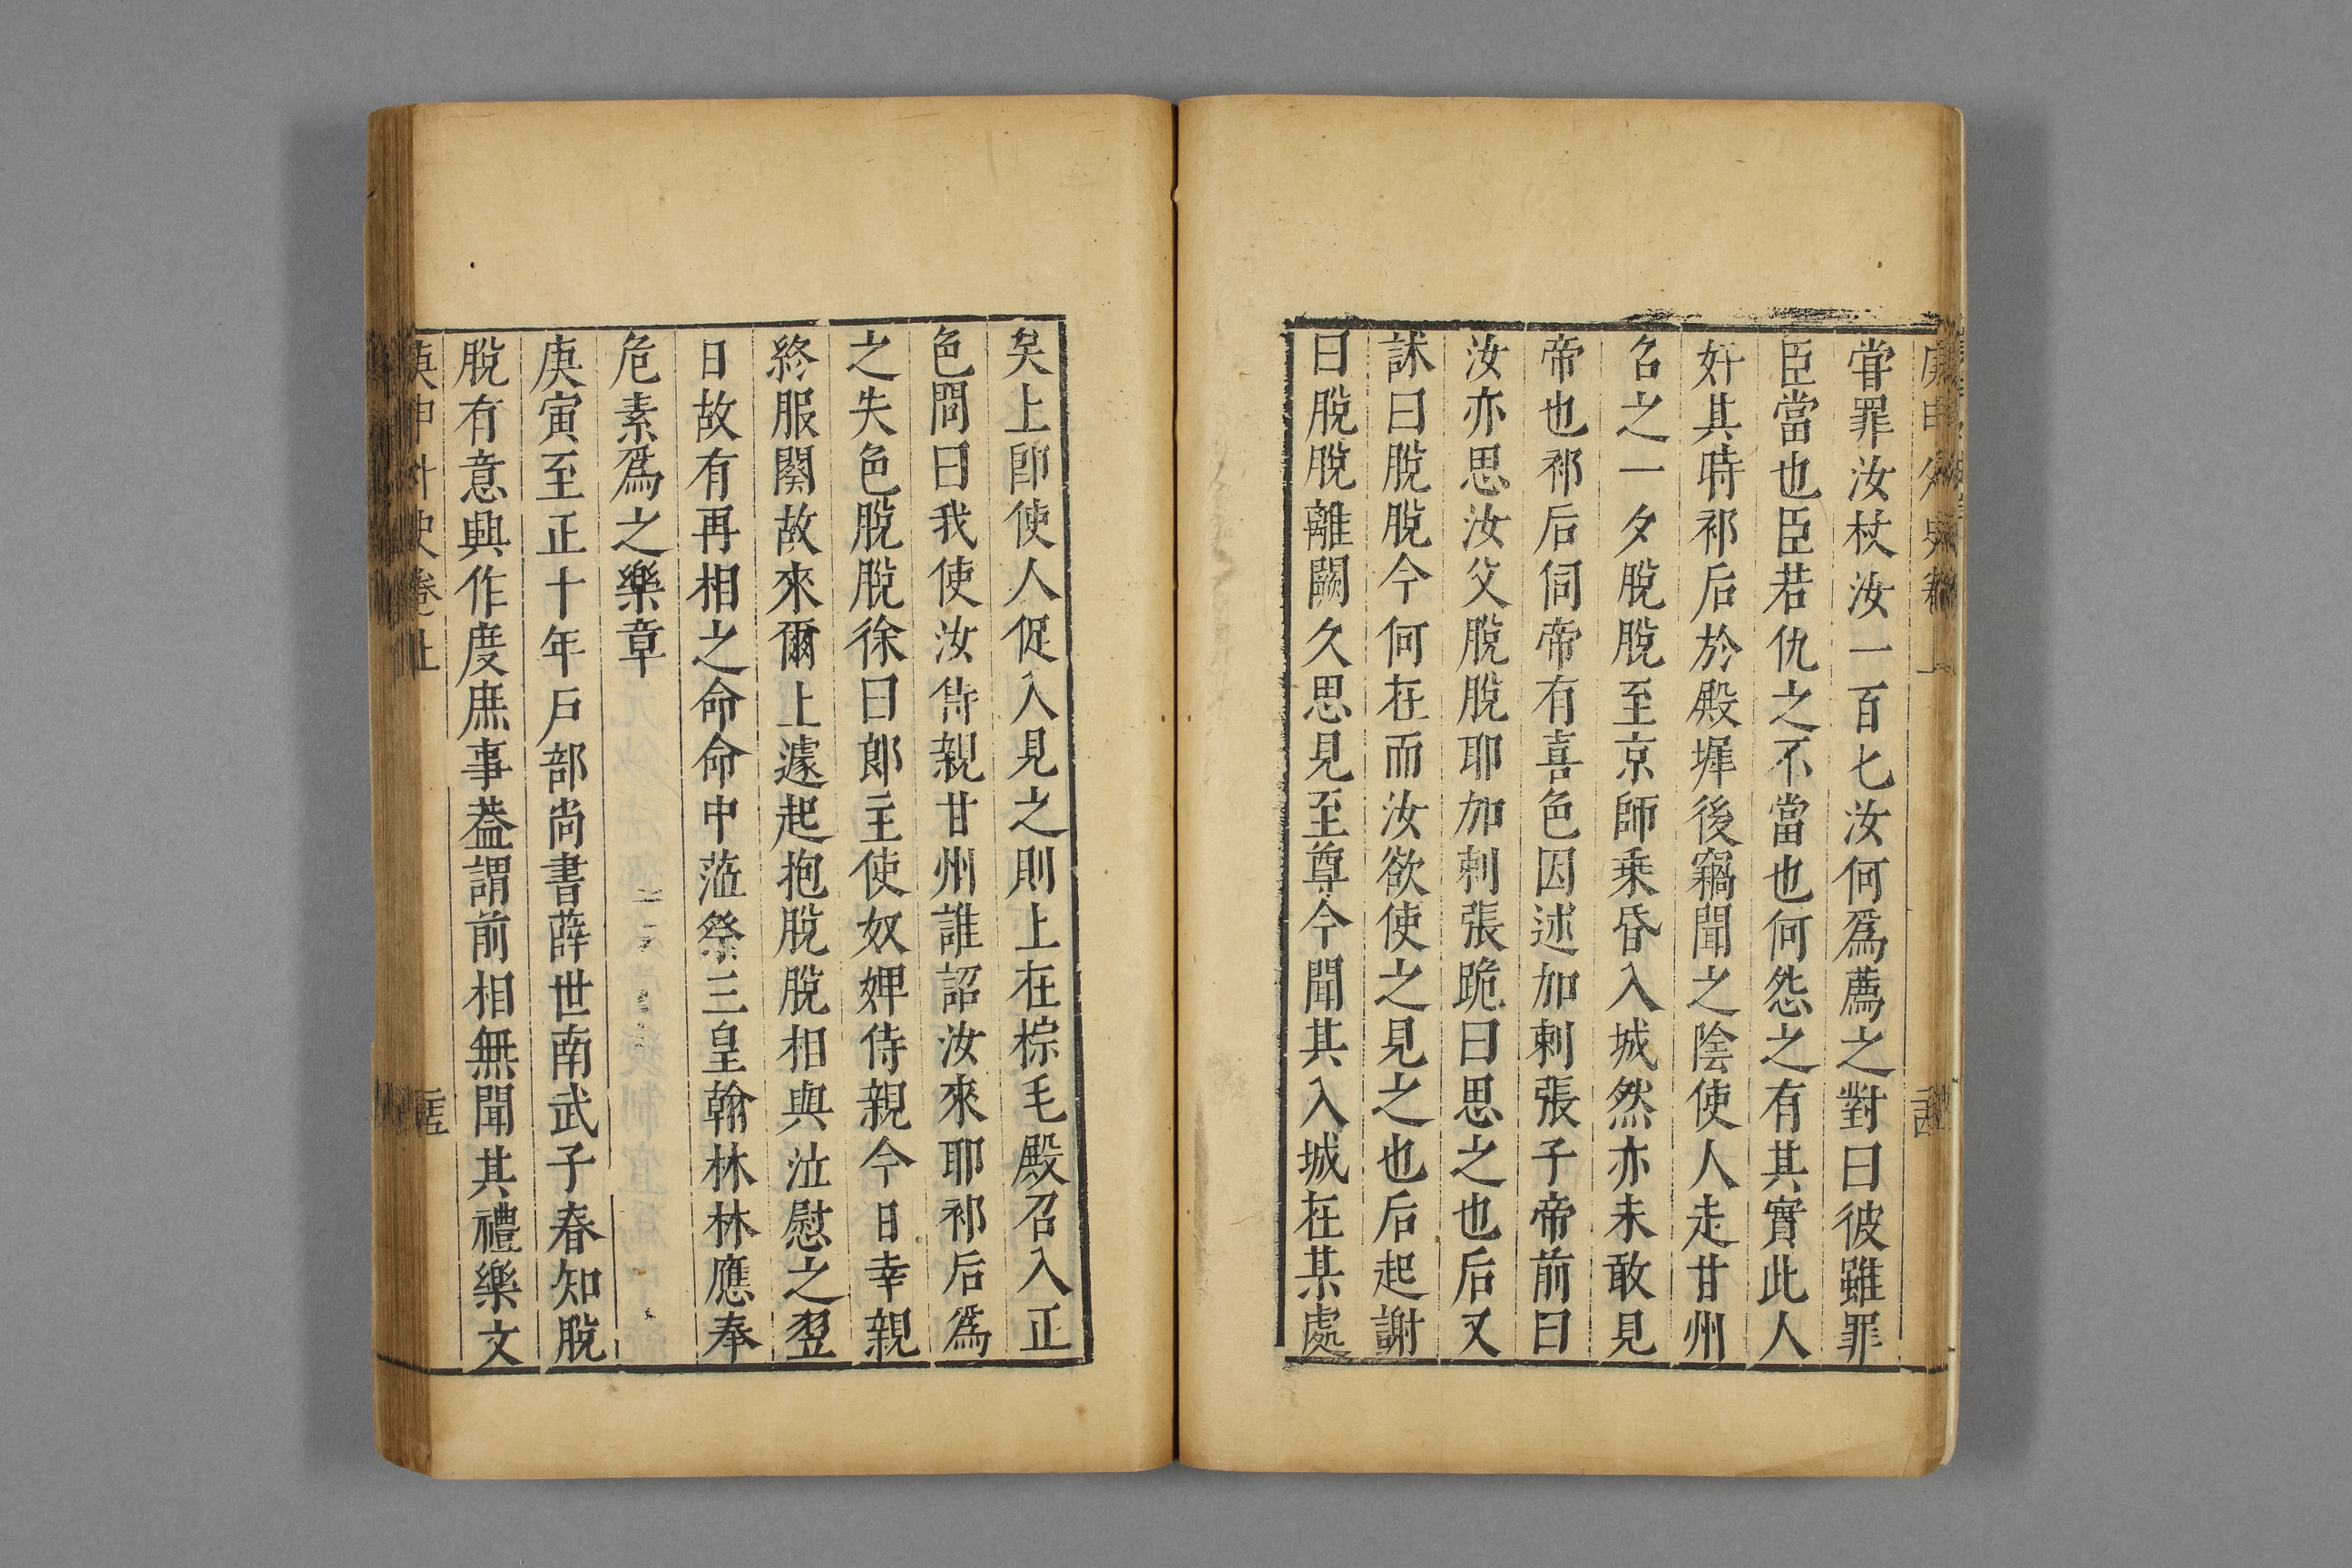 嘗罪汝杖汝一百七汝何爲薦之對曰彼雖罪
臣當也臣若仇之不當也何怨之有其實此人
奸其時祁后於殿墀後竊聞之陰使人走甘州
名之一夕脫脫至京師乗昏入城然亦未敢見
帝也祁后伺帝有喜色因述加剌張子帝前曰
汝亦思汝父脫脫耶加剌張跪曰思之也后又
訹曰脫脫今何在而汝欲使之見之也后起謝
曰脫脫離闕久思見至尊今聞其入城在某處
矣上卽使人促入見之則上在棕毛殿召入正
色問曰我使汝侍親甘州誰詔汝來耶祁后爲
之失色脫脫徐曰郎主使奴婢侍親今日幸親
終服闋故來爾上遽起抱脫脫相與泣慰之翌
日故有再相之命命中蒞祭三皇翰林林應奉
危素爲之樂章
庚寅至正十年戶部尚書薛世南武子春知脫
脫有意興作度庶事葢謂前相無聞其禮樂文
庚申外史卷上